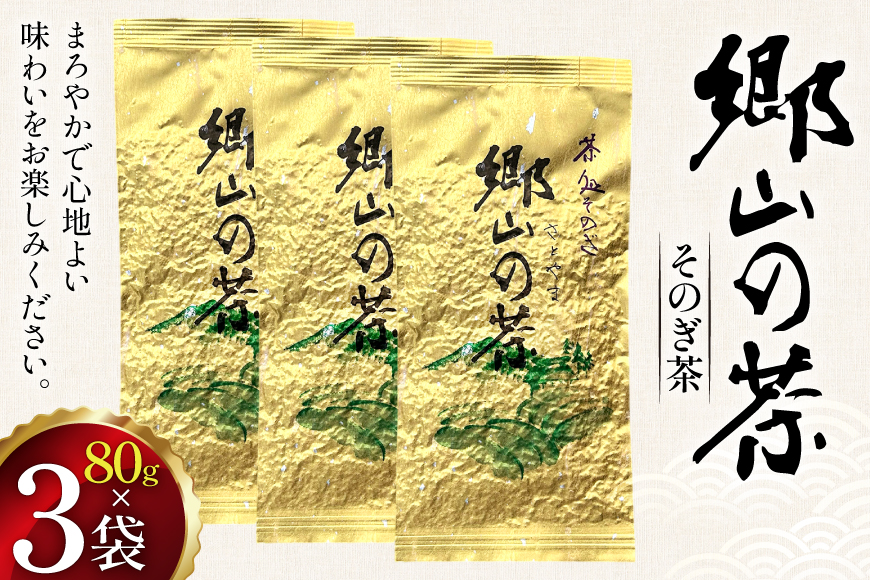 郷山の茶
そのぎ茶
まろやかで心地よい
味わいをお楽しみください。
郷山の茶
郷山の茶
茶処そのぎ
さとやま
郷山の茶
80g
×
3袋